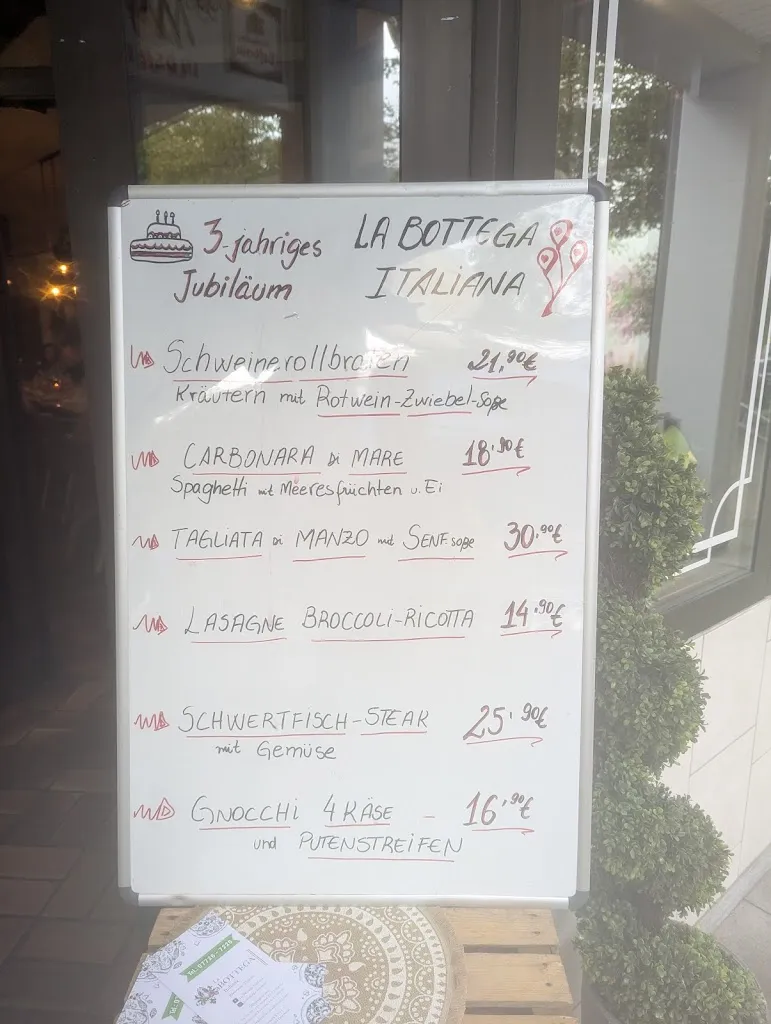 3-jähriges LA BOTTEGA
Jubiläum ITALIANA
Schweinerollbraten 21,90€
Kräutern mit Rotwein-Zwiebel-Soße
CARBONARA DI MARE 18,90€
Spaghetti mit Meeresfrüchten u. Ei
TAGLIATA DI MANZO mit SENFSOßE 30,90€
LASAGNE BROCCOLI-RICOTTA 14,90€
SCHWERTFISCH-STEAK 25,90€
mit Gemüse
GNOCCHI 4 KÄSE - 16,90€
und PUTENSTREIFEN
BOTTEGA